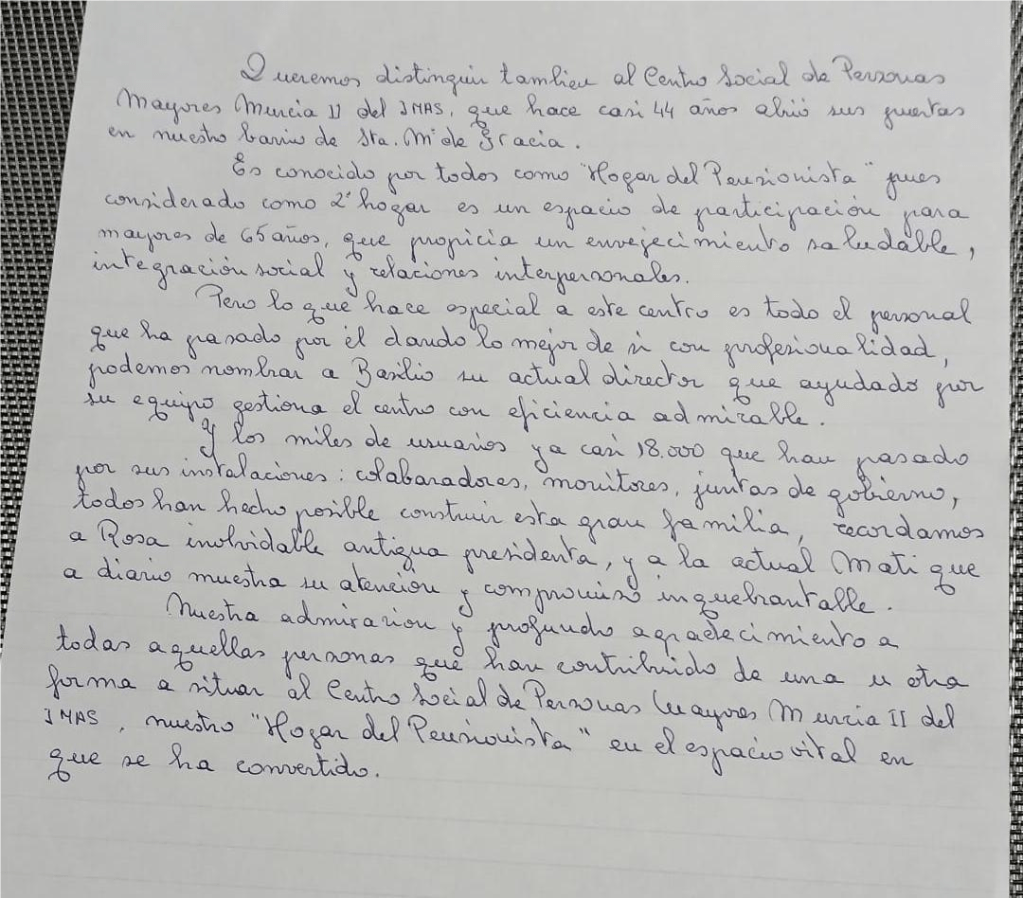 Queremos distinguir tambien al Centro Social de Personas
Mayores Murcia II del IMAS, que hace casi 44 años abrió sus puertas
en nuestro barrio de Sta. Mª de Gracia.
Es conocido por todos como "Hogar del Pensionista" pues
considerado como 2º hogar es un espacio de participación para
mayores de 65 años, que propicia un envejecimiento saludable,
integración social y relaciones interpersonales.
Pero lo que hace especial a este centro es todo el personal
que ha pasado por él dando lo mejor de si con profesionalidad,
podemos nombrar a Basilio su actual director que ayudado por
su equipo gestiona el centro con eficiencia admirable.
Y los miles de usuarios ya casi 18.000 que han pasado
por sus instalaciones: colabaradores, monitores, juntas de gobierno,
todos han hecho posible construir esta gran familia, recordamos
a Rosa inolvidable antigua presidenta, y a la actual Mati que
a diario muestra su atención y compromiso inquebrantable.
Nuestra admiracion y profundo agradecimiento a
todas aquellas personas que han contribuido de una u otra
forma a situar al Centro Social de Personas Mayores Murcia II del
IMAS, nuestro "Hogar del Pensionista" en el espacio vital en
que se ha convertido.